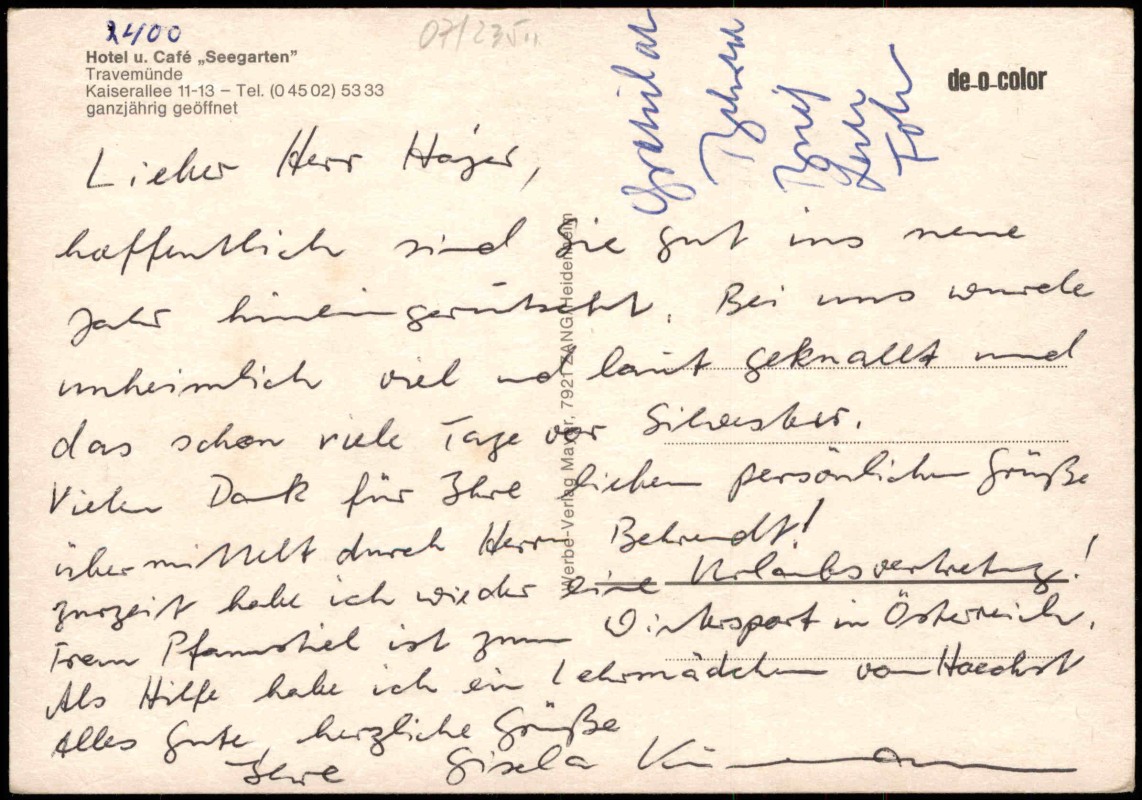 2400
07/235
Hotel u. Café „Seegarten”
Travemünde
Kaiserallee 11-13 – Tel. (0 45 02) 53 33
ganzjährig geöffnet
de-o-color
Lieber Herr Häger,
hoffentlich sind Sie gut ins neue
Jahr hineingerutscht. Bei uns wurde
unheimlich viel und laut geknallt und
das schon viele Tage vor Silvester.
Vielen Dank für Ihre lieben persönlichen Grüße
übermittelt durch Herrn Behrendt!
zurzeit habe ich wieder eine Urlaubsvertretung!
Frau Pfannstiel ist zum Wintersport in Österreich.
Als Hilfe habe ich ein Lehrmädchen von Hoechst
Alles Gute, herzliche Grüße
Ihre Gisela
Werbe-Verlag Mayer, 7921 ZANG/Heidenheim